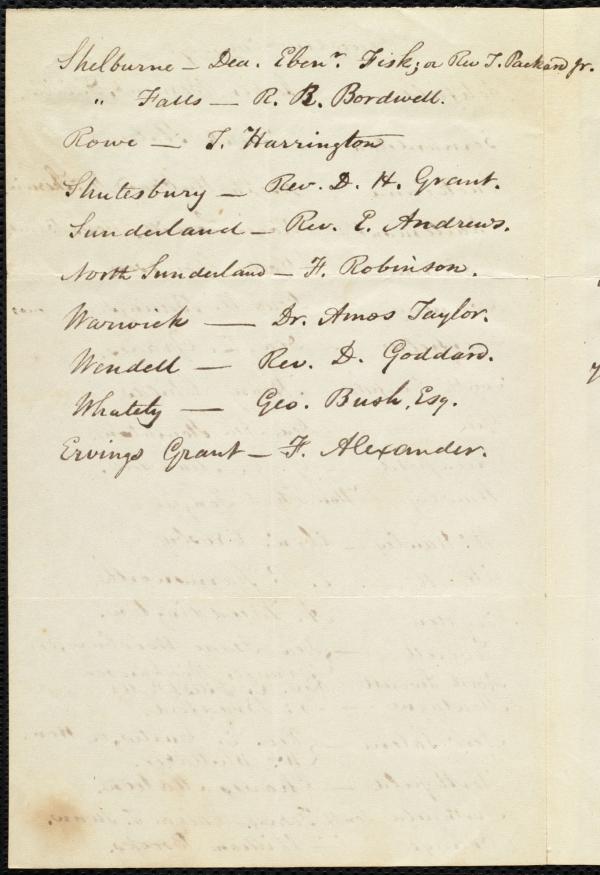 Shelburne — Dea. Ebenr. Fisk; or Rev T. Packard Jr.
" Falls — R. B. Bordwell.
Rowe — T. Harrington
Shutesbury — Rev. D. H. Grant.
Sunderland — Rev. E. Andrews.
North Sunderland — F. Robinson.
Warwick — Dr. Amos Taylor.
Wendell — Rev. D. Goddard.
Whately — Geo. Bush, Esq.
Ervings Grant — F. Alexander.